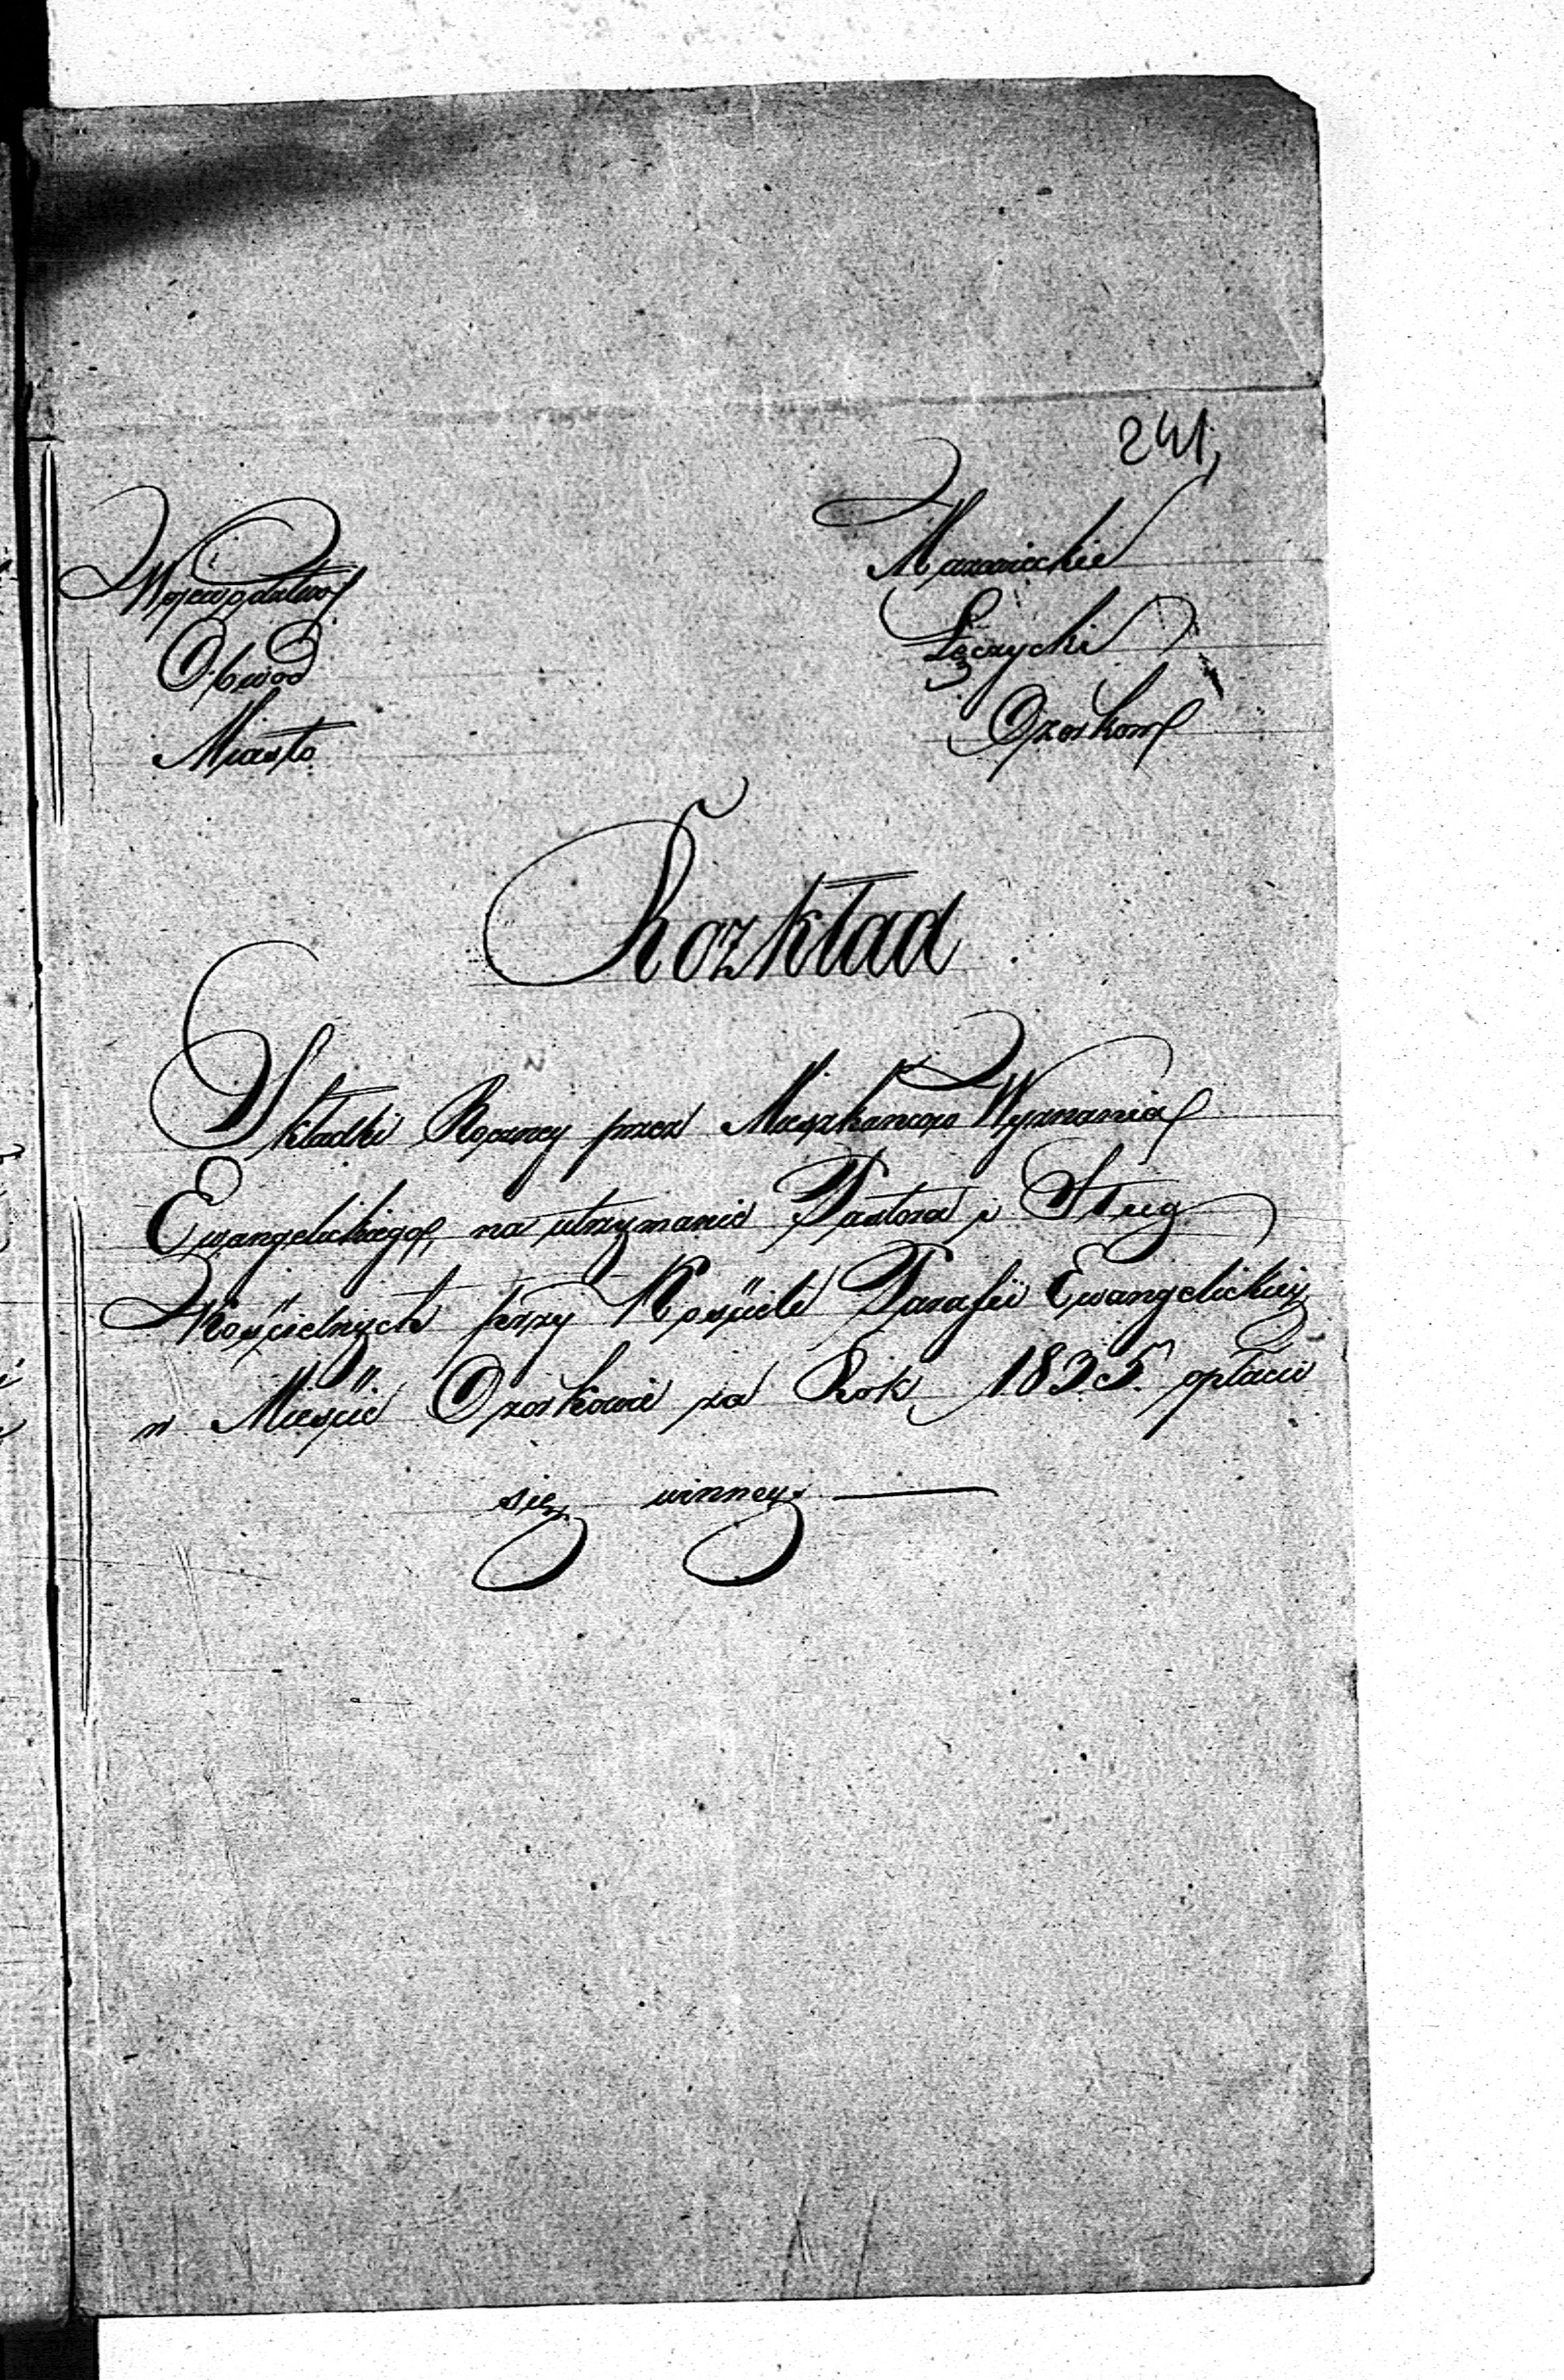 241,
Województwo Mazowieckie
Obwód Łęczycki
Miasto Ozorkow
Rozkład
Składki Roczney przez Mieszkańców Wyznania
Ewangelickiego, na utrzymanie Pastora i Sług
Kościelnych przy Kościele Parafii Ewangelickiey
w Mieście Ozorkowie za Rok 1835 opłacić
się winney.